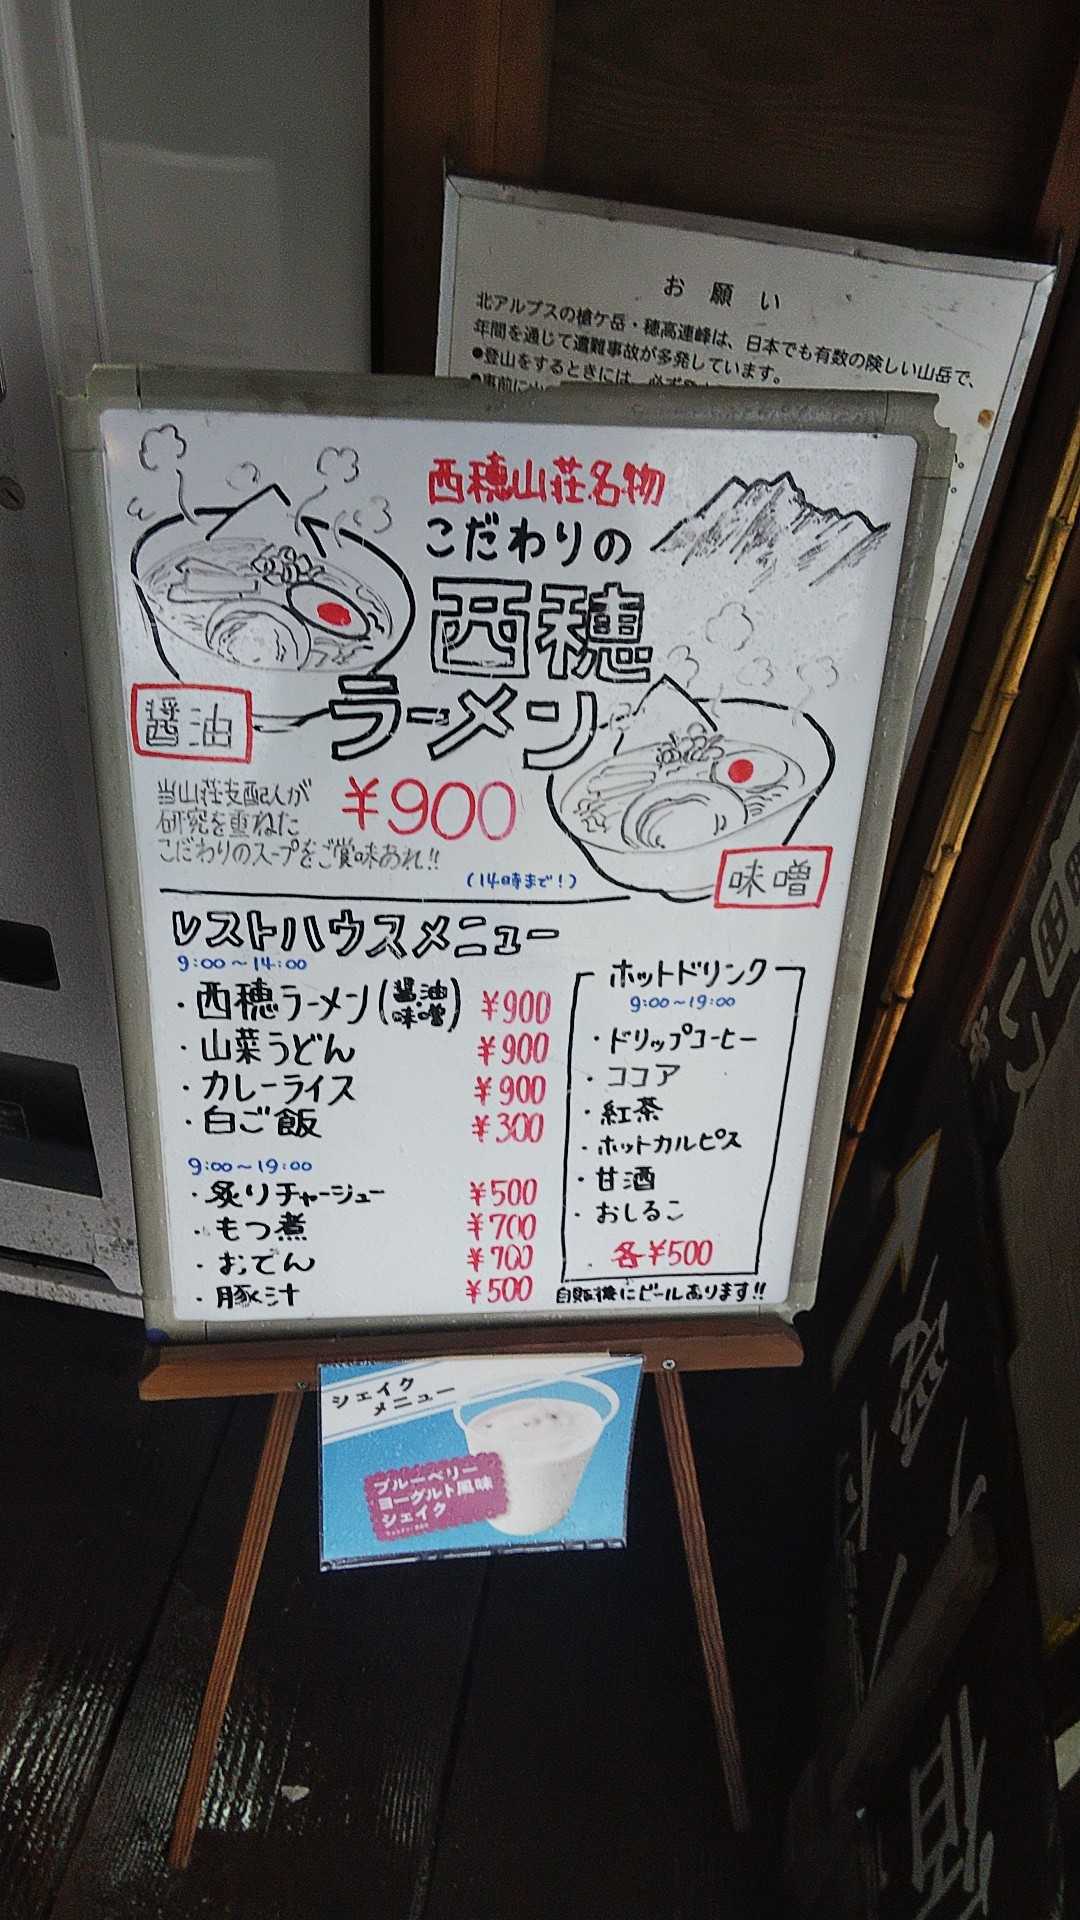 お願い
北アルプスの槍ケ岳・穂高連峰は、日本でも有数の険しい山岳で、
年間を通じて遭難事故が多発しています。
●登山をするときには、必ず
●事前に
西穂山荘名物
こだわりの
西穂
ラーメン
醤油
¥900
当山荘支配人が
研究を重ねた
こだわりのスープをご賞味あれ!!
(14時まで!)
味噌
レストハウスメニュー
9:00～14:00
・西穂ラーメン(醤油 味噌) ¥900
・山菜うどん ¥900
・カレーライス ¥900
・白ご飯 ¥300
9:00～19:00
・炙りチャーシュー ¥500
・もつ煮 ¥700
・おでん ¥700
・豚汁 ¥500
ホットドリンク
9:00～19:00
・ドリップコーヒー
・ココア
・紅茶
・ホットカルピス
・甘酒
・おしるこ
各¥500
自販機にビールあります!!
シェイク
メニュー
ブルーベリー
ヨーグルト風味
シェイク